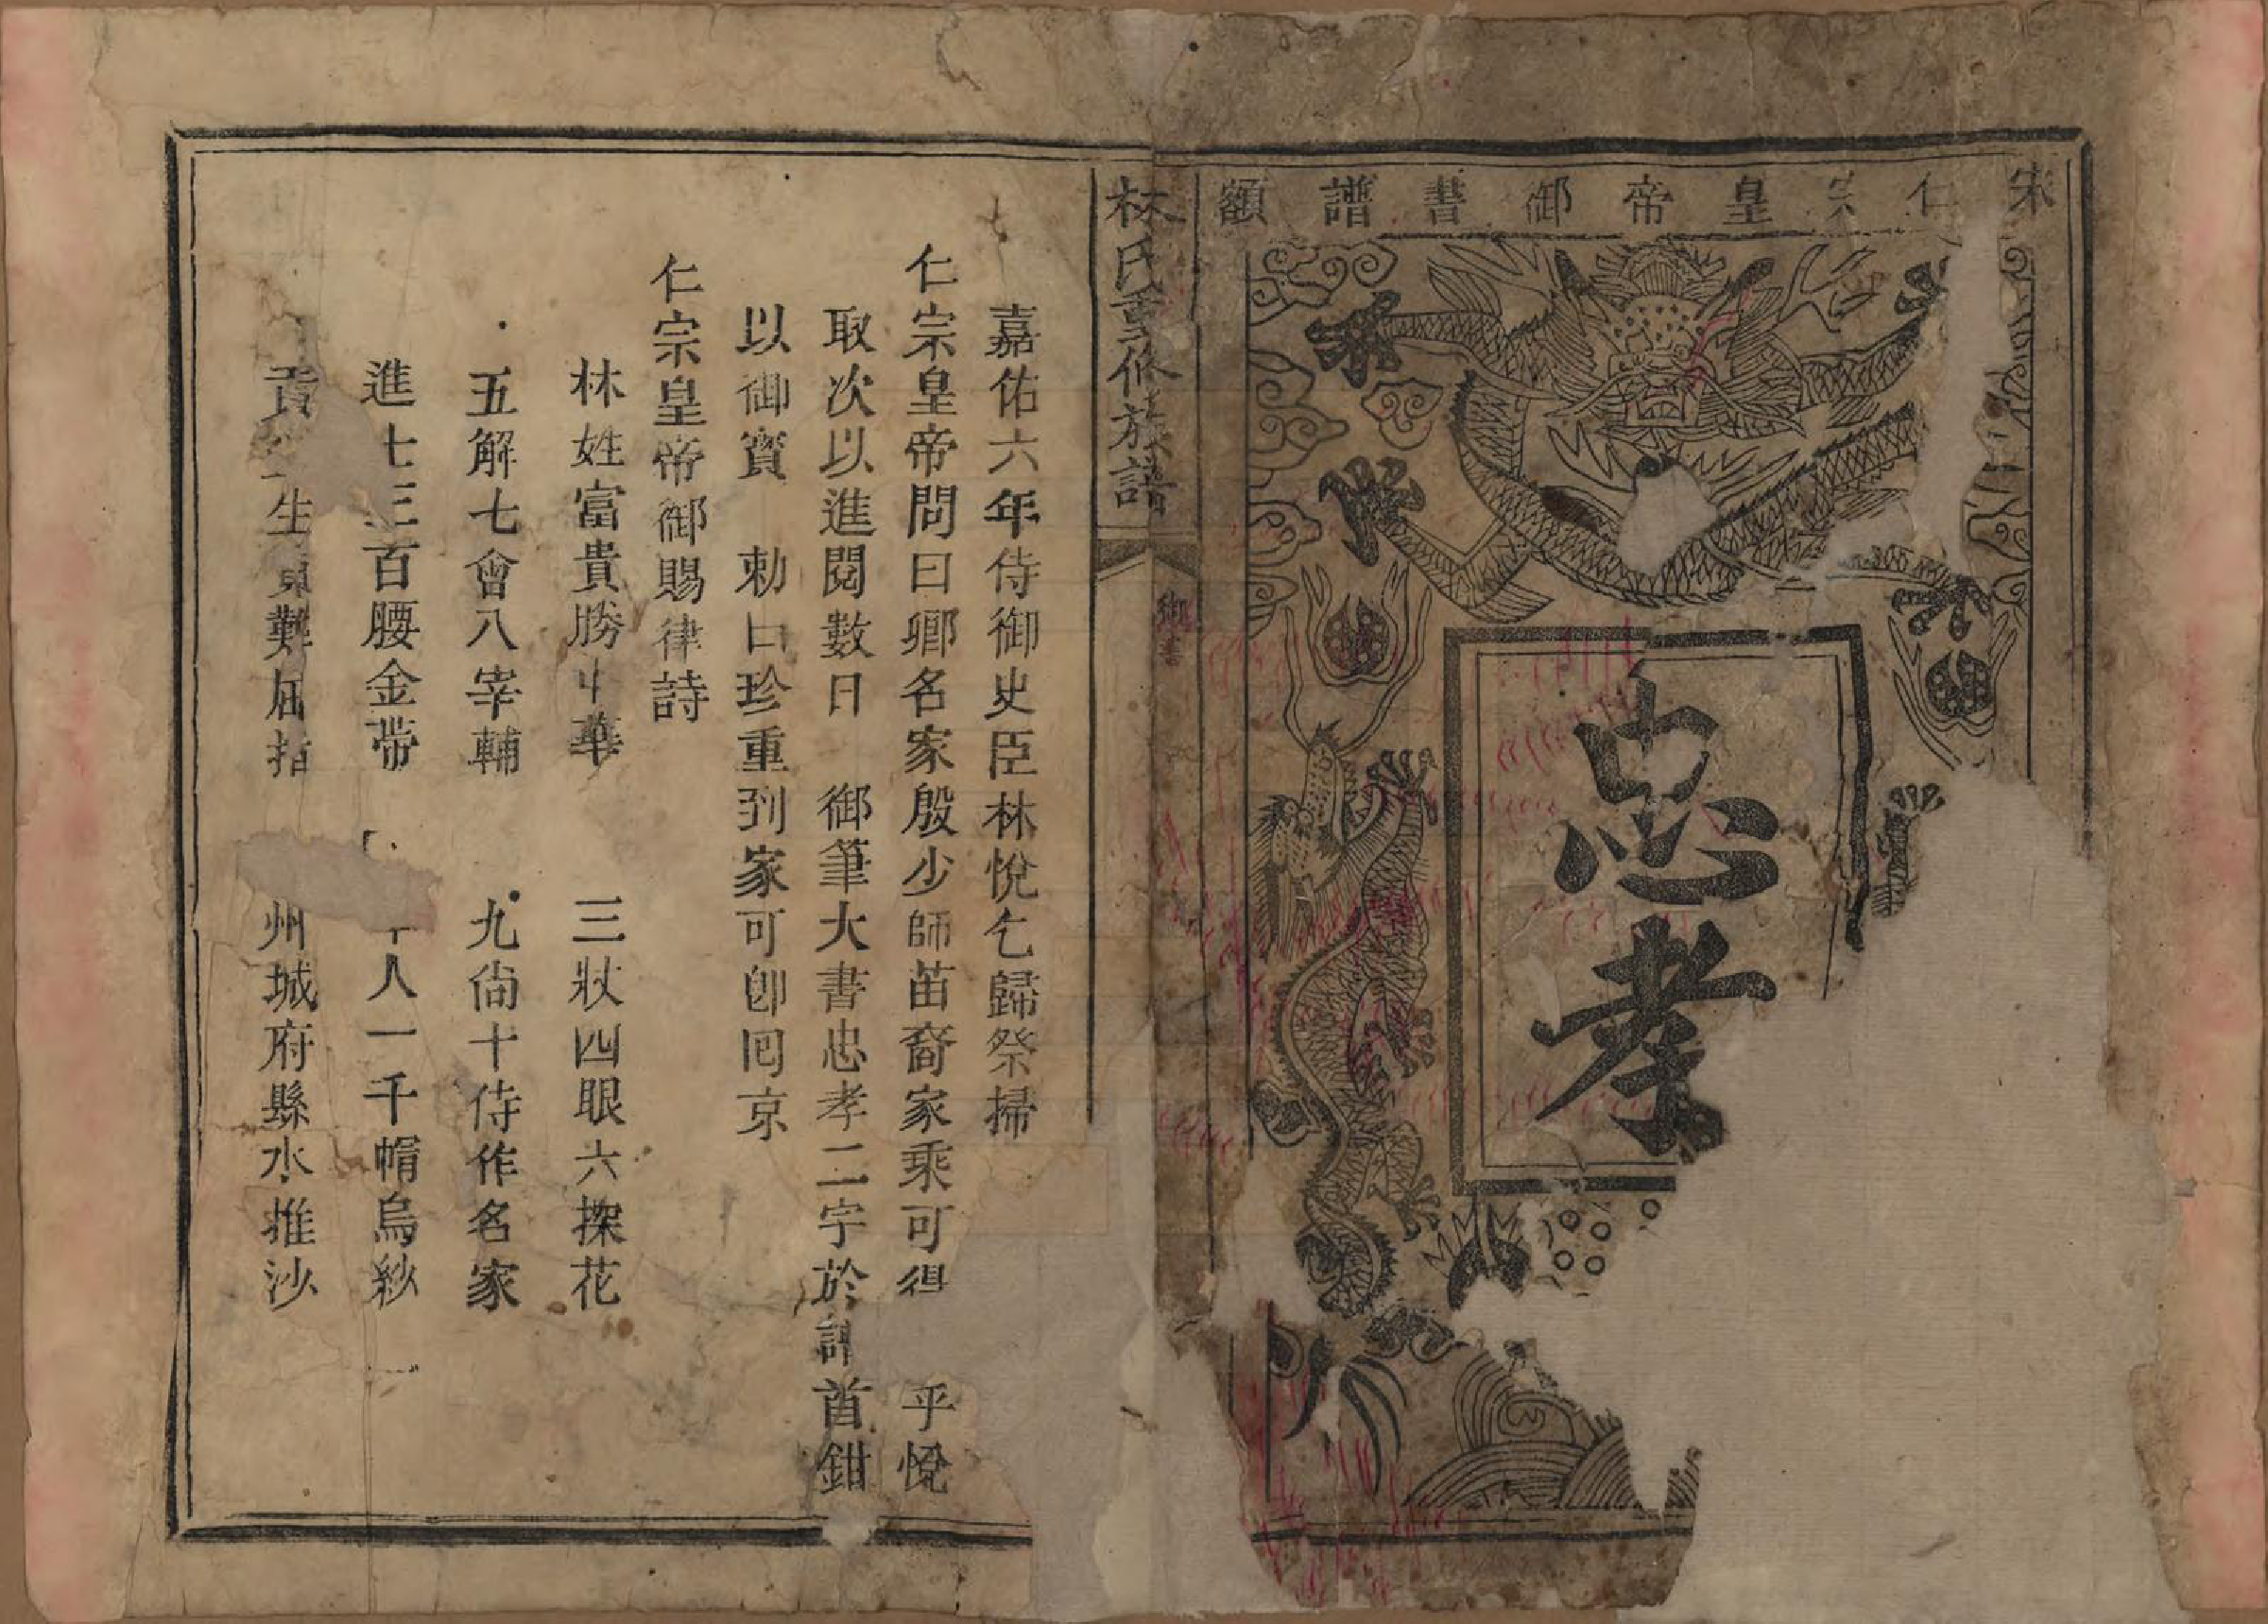 宋仁宗皇帝御書譜額
忠孝
林氏重修族譜
御書
嘉佑六年侍御史臣林悅乞歸祭掃
仁宗皇帝問曰卿名家殷少師苗裔家乘可得 乎悅
取次以進閱數日 御筆大書忠孝二字於譜首鉗
以御寶 勅曰珍重到家可卽囘京
仁宗皇帝御賜律詩
林姓富貴勝中華 三狀四眼六探花
五解七會八宰輔 九尙十侍作名家
進士三百腰金帶 人一千帽烏紗
貢 生員難屈指 州城府縣水推沙